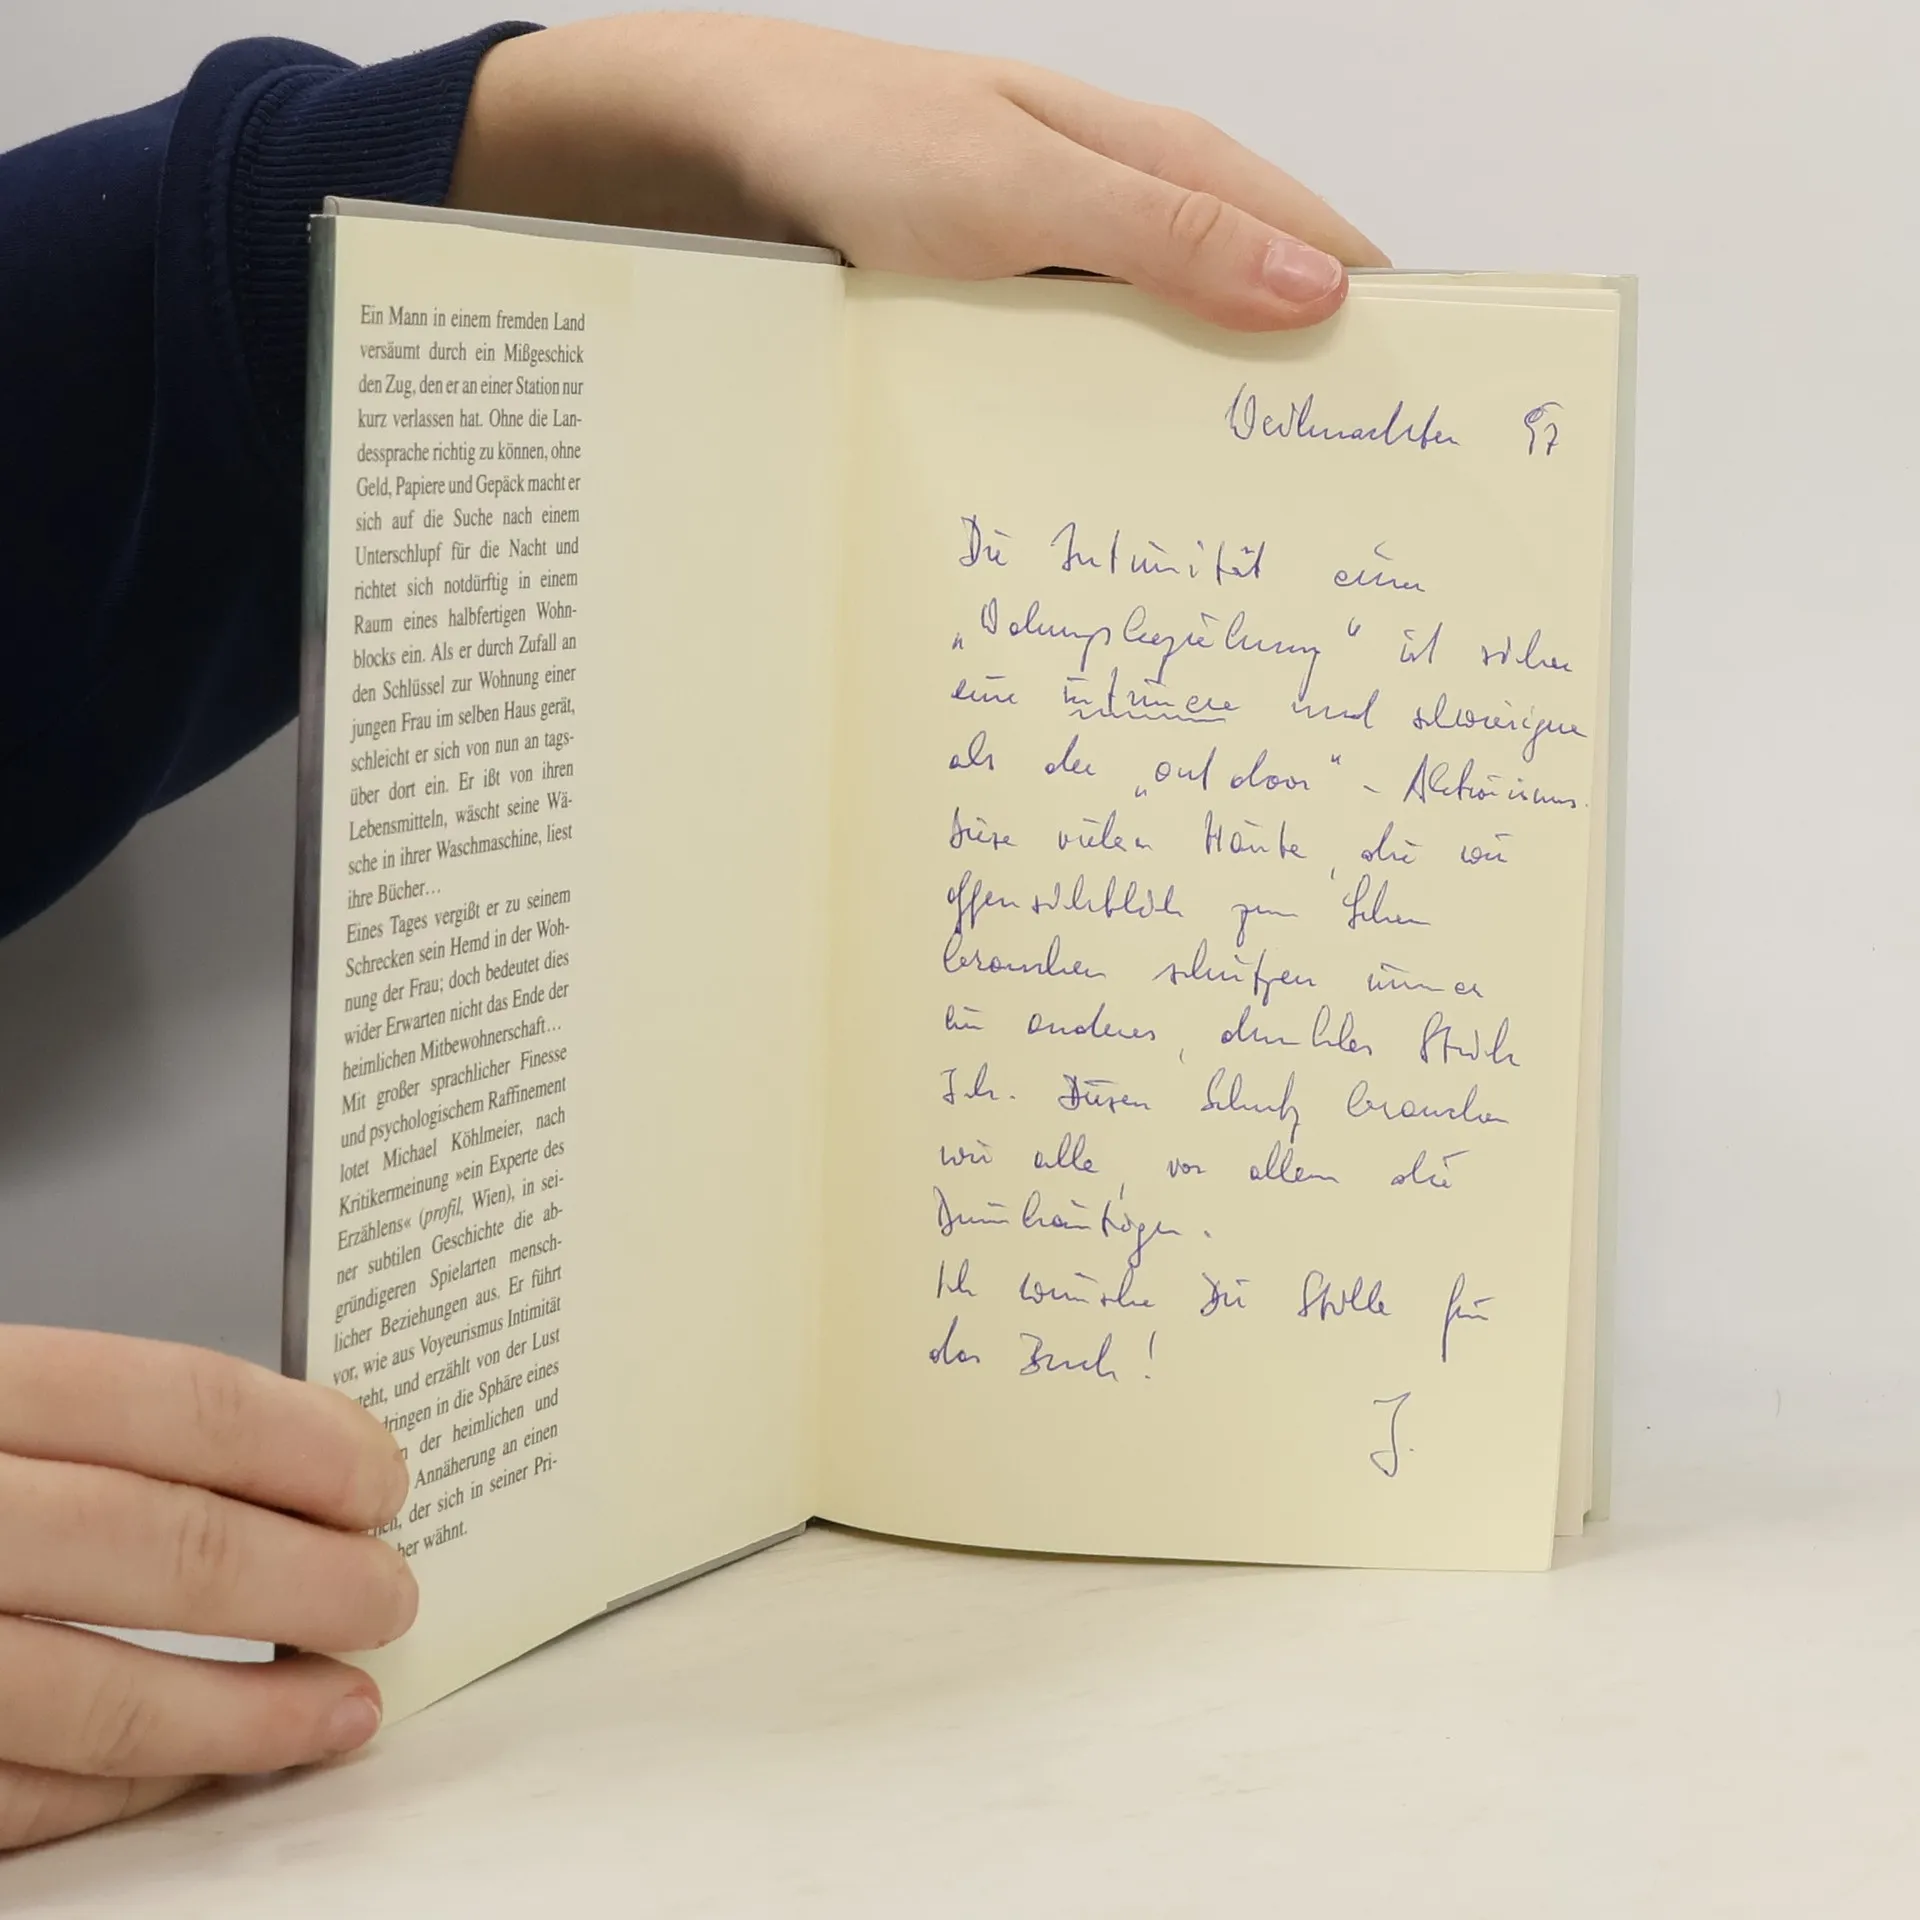 Ein Mann in einem fremden Land
versäumt durch ein Mißgeschick
den Zug, den er an einer Station nur
kurz verlassen hat. Ohne die Lan-
dessprache richtig zu können, ohne
Geld, Papiere und Gepäck macht er
sich auf die Suche nach einem
Unterschlupf für die Nacht und
richtet sich notdürftig in einem
Raum eines halbfertigen Wohn-
blocks ein. Als er durch Zufall an
den Schlüssel zur Wohnung einer
jungen Frau im selben Haus gerät,
schleicht er sich von nun an tags-
über dort ein. Er ißt von ihren
Lebensmitteln, wäscht seine Wä-
sche in ihrer Waschmaschine, liest
ihre Bücher...
Eines Tages vergißt er zu seinem
Schrecken sein Hemd in der Woh-
nung der Frau; doch bedeutet dies
wider Erwarten nicht das Ende der
heimlichen Mitbewohnerschaft...
Mit großer sprachlicher Finesse
und psychologischem Raffinement
lotet Michael Köhlmeier, nach
Kritikermeinung »ein Experte des
Erzählens« (profil, Wien), in sei-
ner subtilen Geschichte die ab-
gründigeren Spielarten mensch-
licher Beziehungen aus. Er führt
vor, wie aus Voyeurismus Intimität
teht, und erzählt von der Lust
dringen in die Sphäre eines
n der heimlichen und
Annäherung an einen
hen, der sich in seiner Pri-
her wähnt.
Weihnachten 97
Die Intimität einer
„Wohnungsbeziehung“ ist sicher
eine intimere und schwierigere
als der „out door“ - Aktivismus.
Diese vielen Häute, die wir
offensichtlich zum Leben
brauchen schützen immer
ein anderes, dunkles Stück
Ich. Diesen Schutz brauchen
wir alle, vor allem die
Dünnhäutigen.
Ich wünsche Dir Stille für
das Buch!
J.